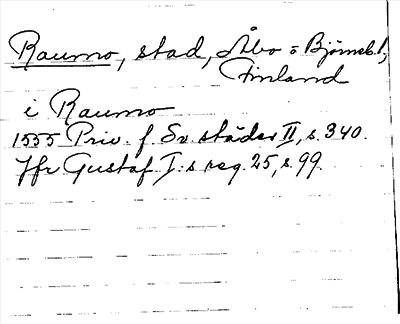 Raumo, stad, Åbo o Björneb.l,
Finland
i Raumo
1555 Priv. f. Sv. städer II, s. 340.
Jfr Gustaf I:s reg. 25, s. 99.